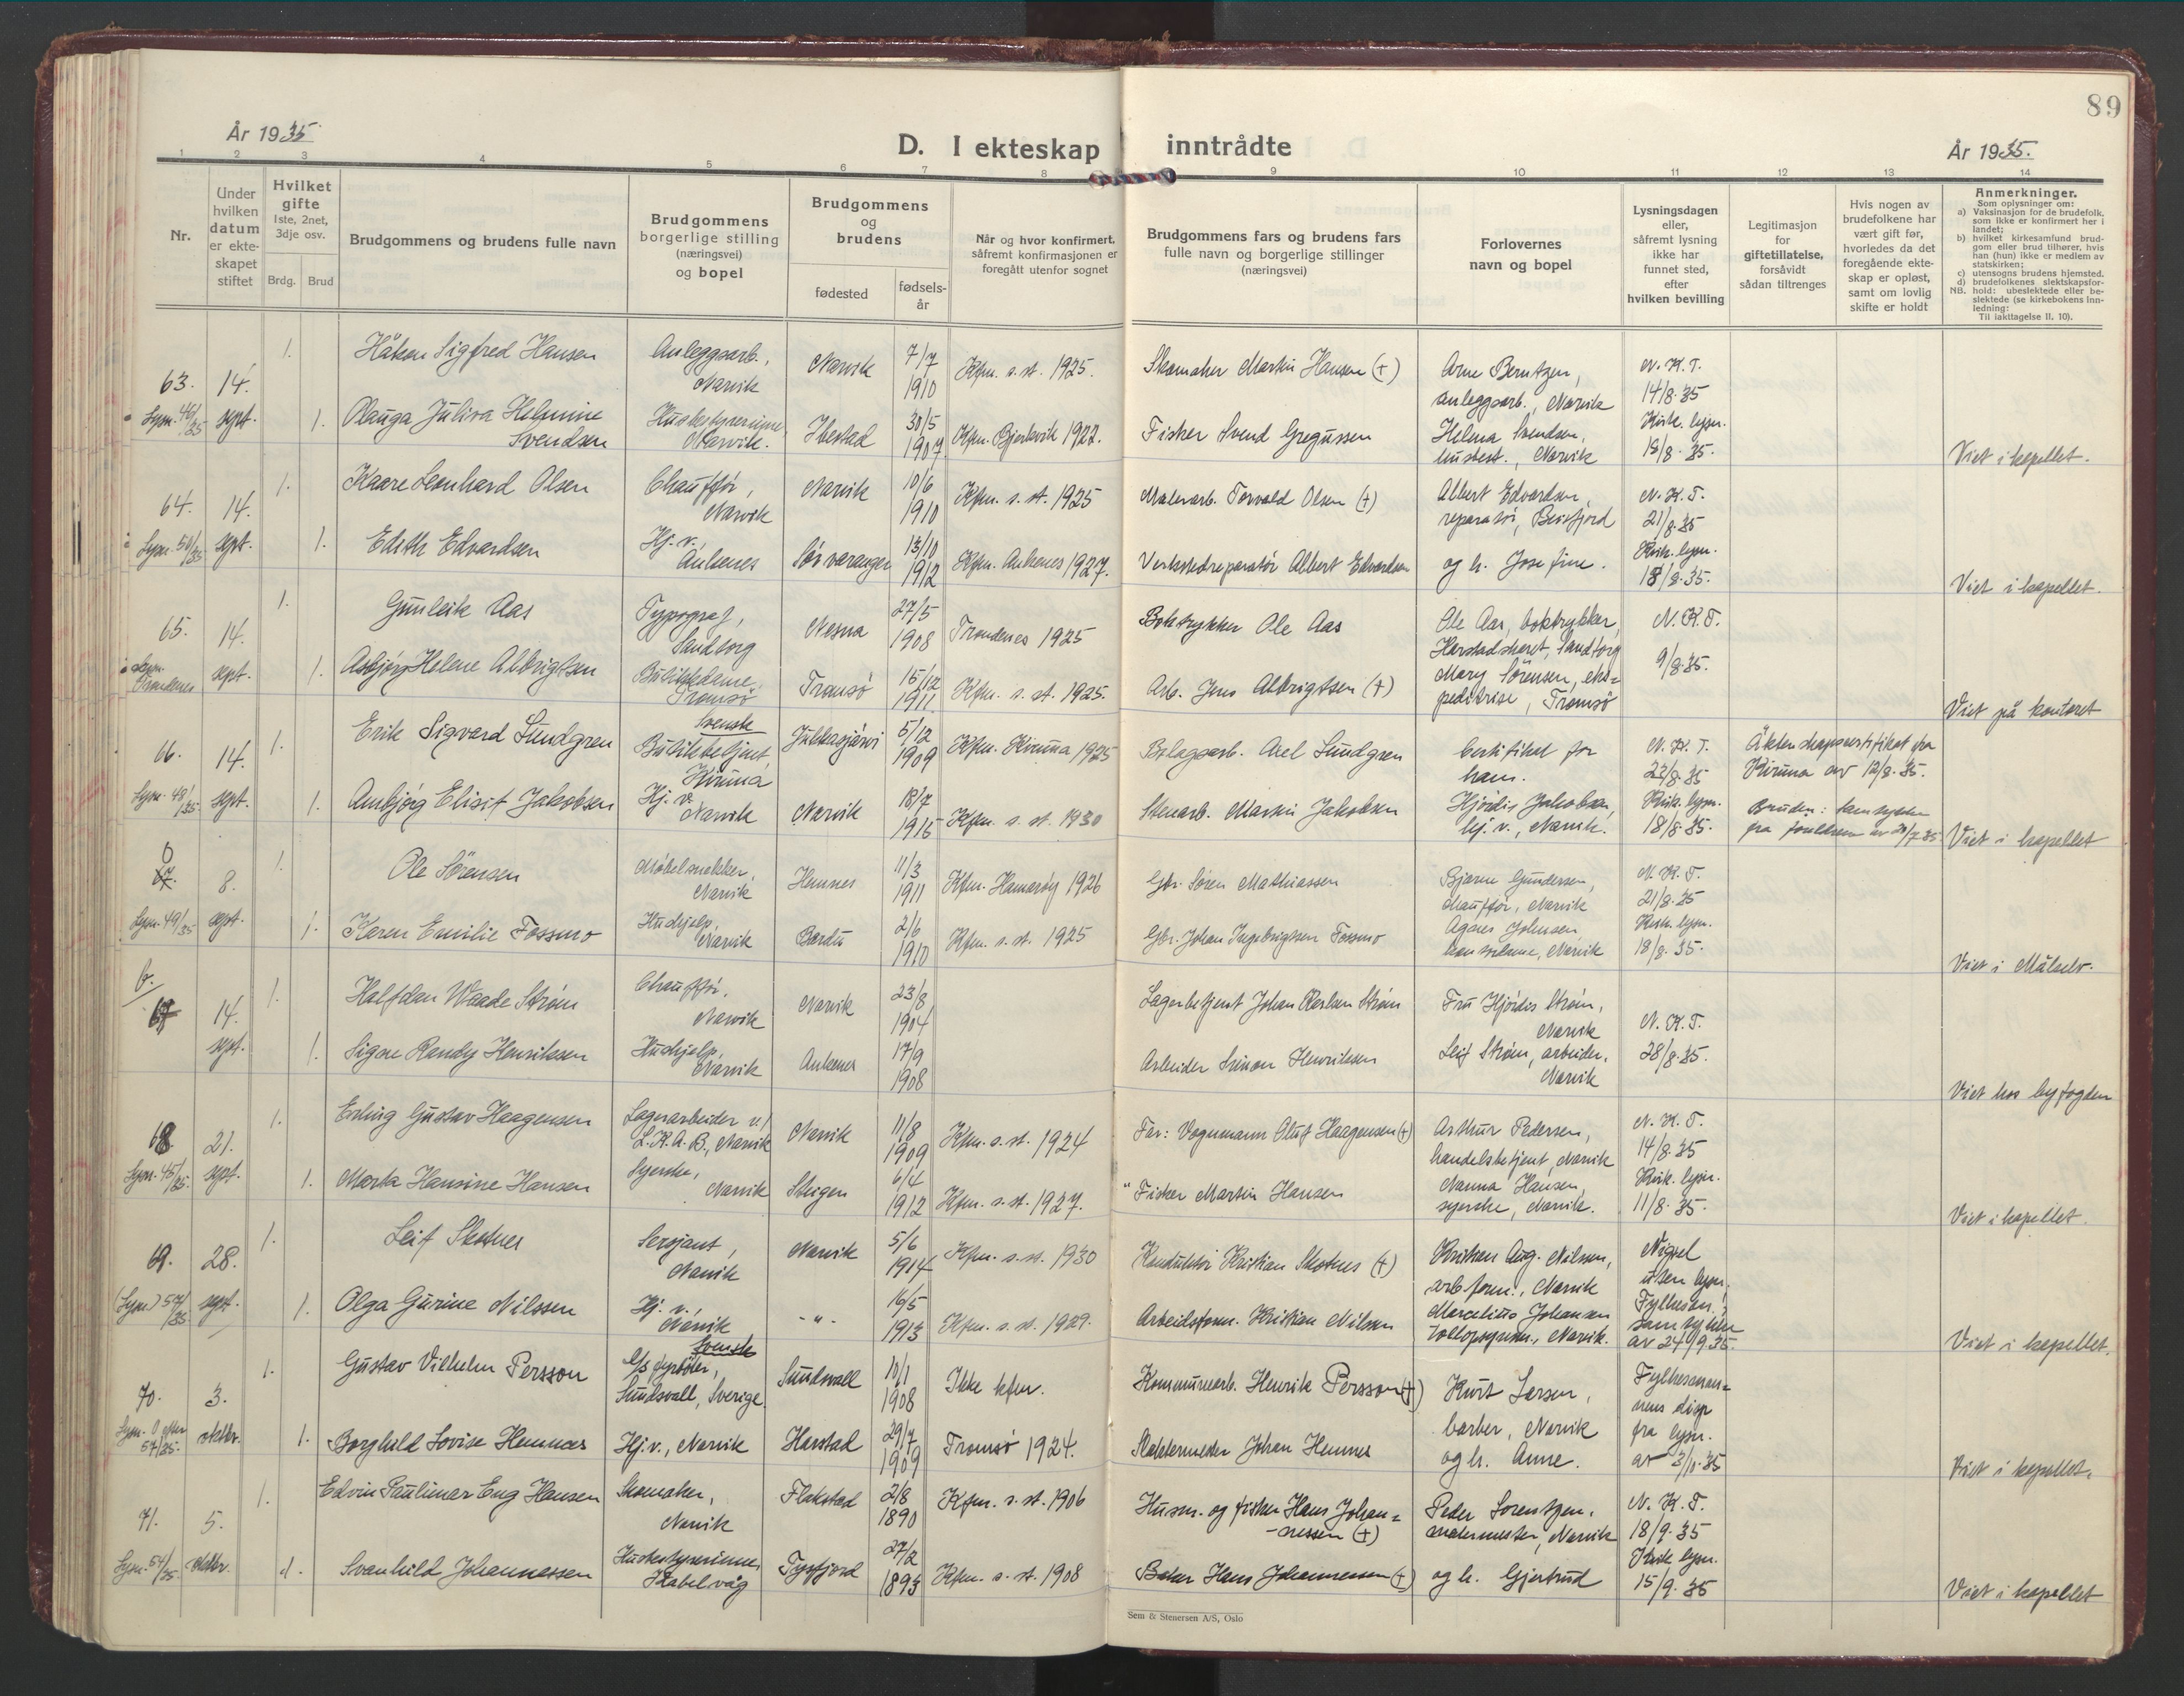 89
År 1935
D. I ekteskap inntrådte
År 1935.
1 2 3 4 5 6 7 8 9 10 11 12 13 14
Nr.
Under
hvilken
datum
er ekte-
skapet
stiftet
Hvilket
gifte
1ste, 2net,
3dje osv.
Brdg. Brud
Brudgommens og brudens fulle navn
Brudgommens
borgerlige stilling
(næringsvei)
og bopel
Brudgommens
og
brudens
fødested
fødsels-
år
Når og hvor konfirmert,
såfremt konfirmasjonen er
foregått utenfor sognet
Brudgommens fars og brudens fars
fulle navn og borgerlige stillinger
(næringsvei)
Forlovernes
navn og bopel
Lysningsdagen
eller,
såfremt lysning
ikke har
funnet sted,
efter
hvilken bevilling
Legitimasjon
for
giftetillatelse,
forsåvidt
sådan tiltrenges
Hvis nogen av
brudefolkene har
vært gift før,
hvorledes da det
foregående ekte-
skap er opløst,
samt om lovlig
skifte er holdt
Anmerkninger.
Som oplysninger om:
a) Vaksinasjon for de brudefolk,
som ikke er konfirmert her i
landet;
b) hvilket kirkesamfund brud-
gom eller brud tilhører, hvis
han (hun) ikke er medlem av
statskirken;
c) utensogns brudens hjemsted.
d) brudefolkenes slektskapsfor-
NB. hold: ubeslektede eller be-
slektede (se kirkebokens Inn-
ledning:
Til iakttagelse II. 10).
63. 14. 1. Håkon Sigfred Hansen Anleggsarb., Narvik Narvik 7/7 1910 Kfm. s. st. 1925. Skomaker Martin Hansen (+) Arne Berntzen, anleggsarb., Narvik N. K. T. 14/8 35
Lysn. 46/35 sept. 1. Olauga Julira Helmine Svendsen Husbestyrerinne Narvik. Ibestad 30/5 1907 Kfm. Bjerkvik 1922. Fisker Svend Gregussen Helena Svendsen, husbest., Narvik Kirk. lysn. 18/8. 35. Viet i kapellet.
64. 14. 1. Kaare Leonhard Olsen Chauffør, Narvik Narvik 10/6 1910 Kfm. s. st. 1925 Malerarb. Torvald Olsen (+) Albert Edvardsen, reparatør, Beisfjord N. K. T. 21/8 35
Lysn. 50/35 sept. 1. Edith Edvardsen Hj. v., Ankenes Sørvaranger 13/10 1912 Kfm. Ankenes 1927. Verkstedreparatør Albert Edvardsen og h. Josefine. Kirk. lysn. 18/8. 35. Viet i kapellet.
65. 14. 1. Gunleik Aas Typograf, Sandtorg Nesna 27/5 1908 Trondenes 1925 Boktrykker Ole Aas Ole Aas, boktrykker, Harstadskaret, Sandtorg N. K. T.
Lysn. Trondenes sept. 1. Asbjørg Helene Albrigtsen Butikkdame, Tromsø Tromsø 15/12 1911. Kfm. s. st. 1925. Arb. Jens Albrigtsen (+) Mary Sørensen, eks- peditrise, Tromsø 9/8. 35. Viet på kontoret
66. 14. 1. Erik Sigvard Sundgren Svensk Butikkbetjent, Kiruna Jukkasjärvi 5/12 1909 Kfm. Kiruna 1925 Beleggsarb. Axel Sundgren Certifikat for ham. N. K. T. 22/8. 35 Äktenskapscertifikat fra Kiruna av 12/8. 35.
Lysn. 48/35. sept. 1. Anbjørg Elisif Jakobsen Hj. v. Narvik Narvik 18/7 1915 Kfm. s. st. 1930 Stenarb. Martin Jakobsen Hjördis Jakobsen, hj. v., Narvik. Kirk. lysn. 18/8. 35. Bruden: samtykke fra foreldrene Viet i kapellet
0 67. 8. 1. Ole Sörensen Møbelsnekker, Narvik Hemnes 11/3 1911 Kfm. Hamarøy 1926 Gbr. Søren Mathiassen Bjarne Gundersen, chauffør, Narvik N. K. T. 21/8. 35
Lysn. 49/35 sept. 1. Karen Emilie Fossmo Hushjelp, Narvik Bardu 2/6 1910 Kfm. s. st. 1925 Gbr. Johan Ingebrigtsen Fossmo Agnes Johnsen, Narvik Kirk. lysn. 18/8. 35. Viet i Målselv.
b./67 14. 1. Halfdan Waade Strøm Chauffør, Narvik Narvik 23/8 1904 Lagerbetjent Johan Karlsen Strøm Fru Hjördis Strøm, Narvik N. K. T.
sept. 1. Signe Randy Henriksen Hushjelp, Narvik Ankenes 17/9 1908 Arbeider Simon Henriksen Leif Strøm, arbeider, Narvik 28/8. 35. Viet hos byfogden
68. 21. 1. Erling Gustav Haagensen Lagerarbeider v/ L.K.A.B., Narvik Narvik 11/8 1909 Kfm. s. st. 1924 Far: Vognmann Oluf Haagensen (+) Arthur Pedersen, handelsbetjent, Narvik N. K. T. 14/8. 35
Lysn. 45/35. sept. 1. Marta Hansine Hansen Syerske, Narvik Steigen 6/4 1912 Kfm. s. st. 1927. " Fisker Martin Hansen Nanna Hansen, syerske, Narvik. Kirk. lysn. 11/8. 35. Viet i kapellet.
69. 28. 1. Leif Skotnes Sersjant, Narvik Narvik 5/6 1914 Kfm. s. st. 1930 Konduktör Kristian Skotnes (+) Kristian Aug. Nilssen, arb.form., Narvik Vigsel uten lysn.,
(Lysn.) 57/35 sept. 1. Olga Gurine Nilssen Hj. v., Narvik - " - 16/5 1913 Kfm. s. st. 1929. Arbeidsform. Kristian Nilsen Marcelius Johansen tollopsynsm., Narvik. Fylkesm.s samtykke av 24/9. 35. Viet i kapellet.
70. 3. 1. Gustav Vilhelm Persson Svensk fyrbøter, Sundsvall, Sverige. Sundsvall 10/1 1908 Ikke kfm. Kommunearb. Henrik Persson (+) Kurt Larsen, barber, Narvik Fylkesman- nens disp
Lysn. 0 efter 57/35. oktbr. 1. Borghild Lovise Hemnes Hj. v., Narvik Harstad 29/7 1909 Tromsø 1924. Johan Hemnes og h. Anne. fra lysn. av 3/10. 35 Viet i kapellet.
71. 5. 1. Edvin Paulinar Eng Hansen Skomaker, Narvik Flakstad 2/8 1890 Kfm. s. st. 1906 Husm. og fisker Hans Johan- -nessen (+) Peder Lorentzen, malermester, Narvik N. K. T. 18/9. 35
Lysn. 54/35. oktbr. 1. Svanhild Johannessen Husbestyrerinne, Skabelvåg Tysfjord 27/2 1893 Kfm. s. st. 1908 Baker Hans Johannessen (+) og h. Gjertrud Kirk lysn. 15/9. 35 Viet i kapellet
Sem & Stenersen A/S, Oslo